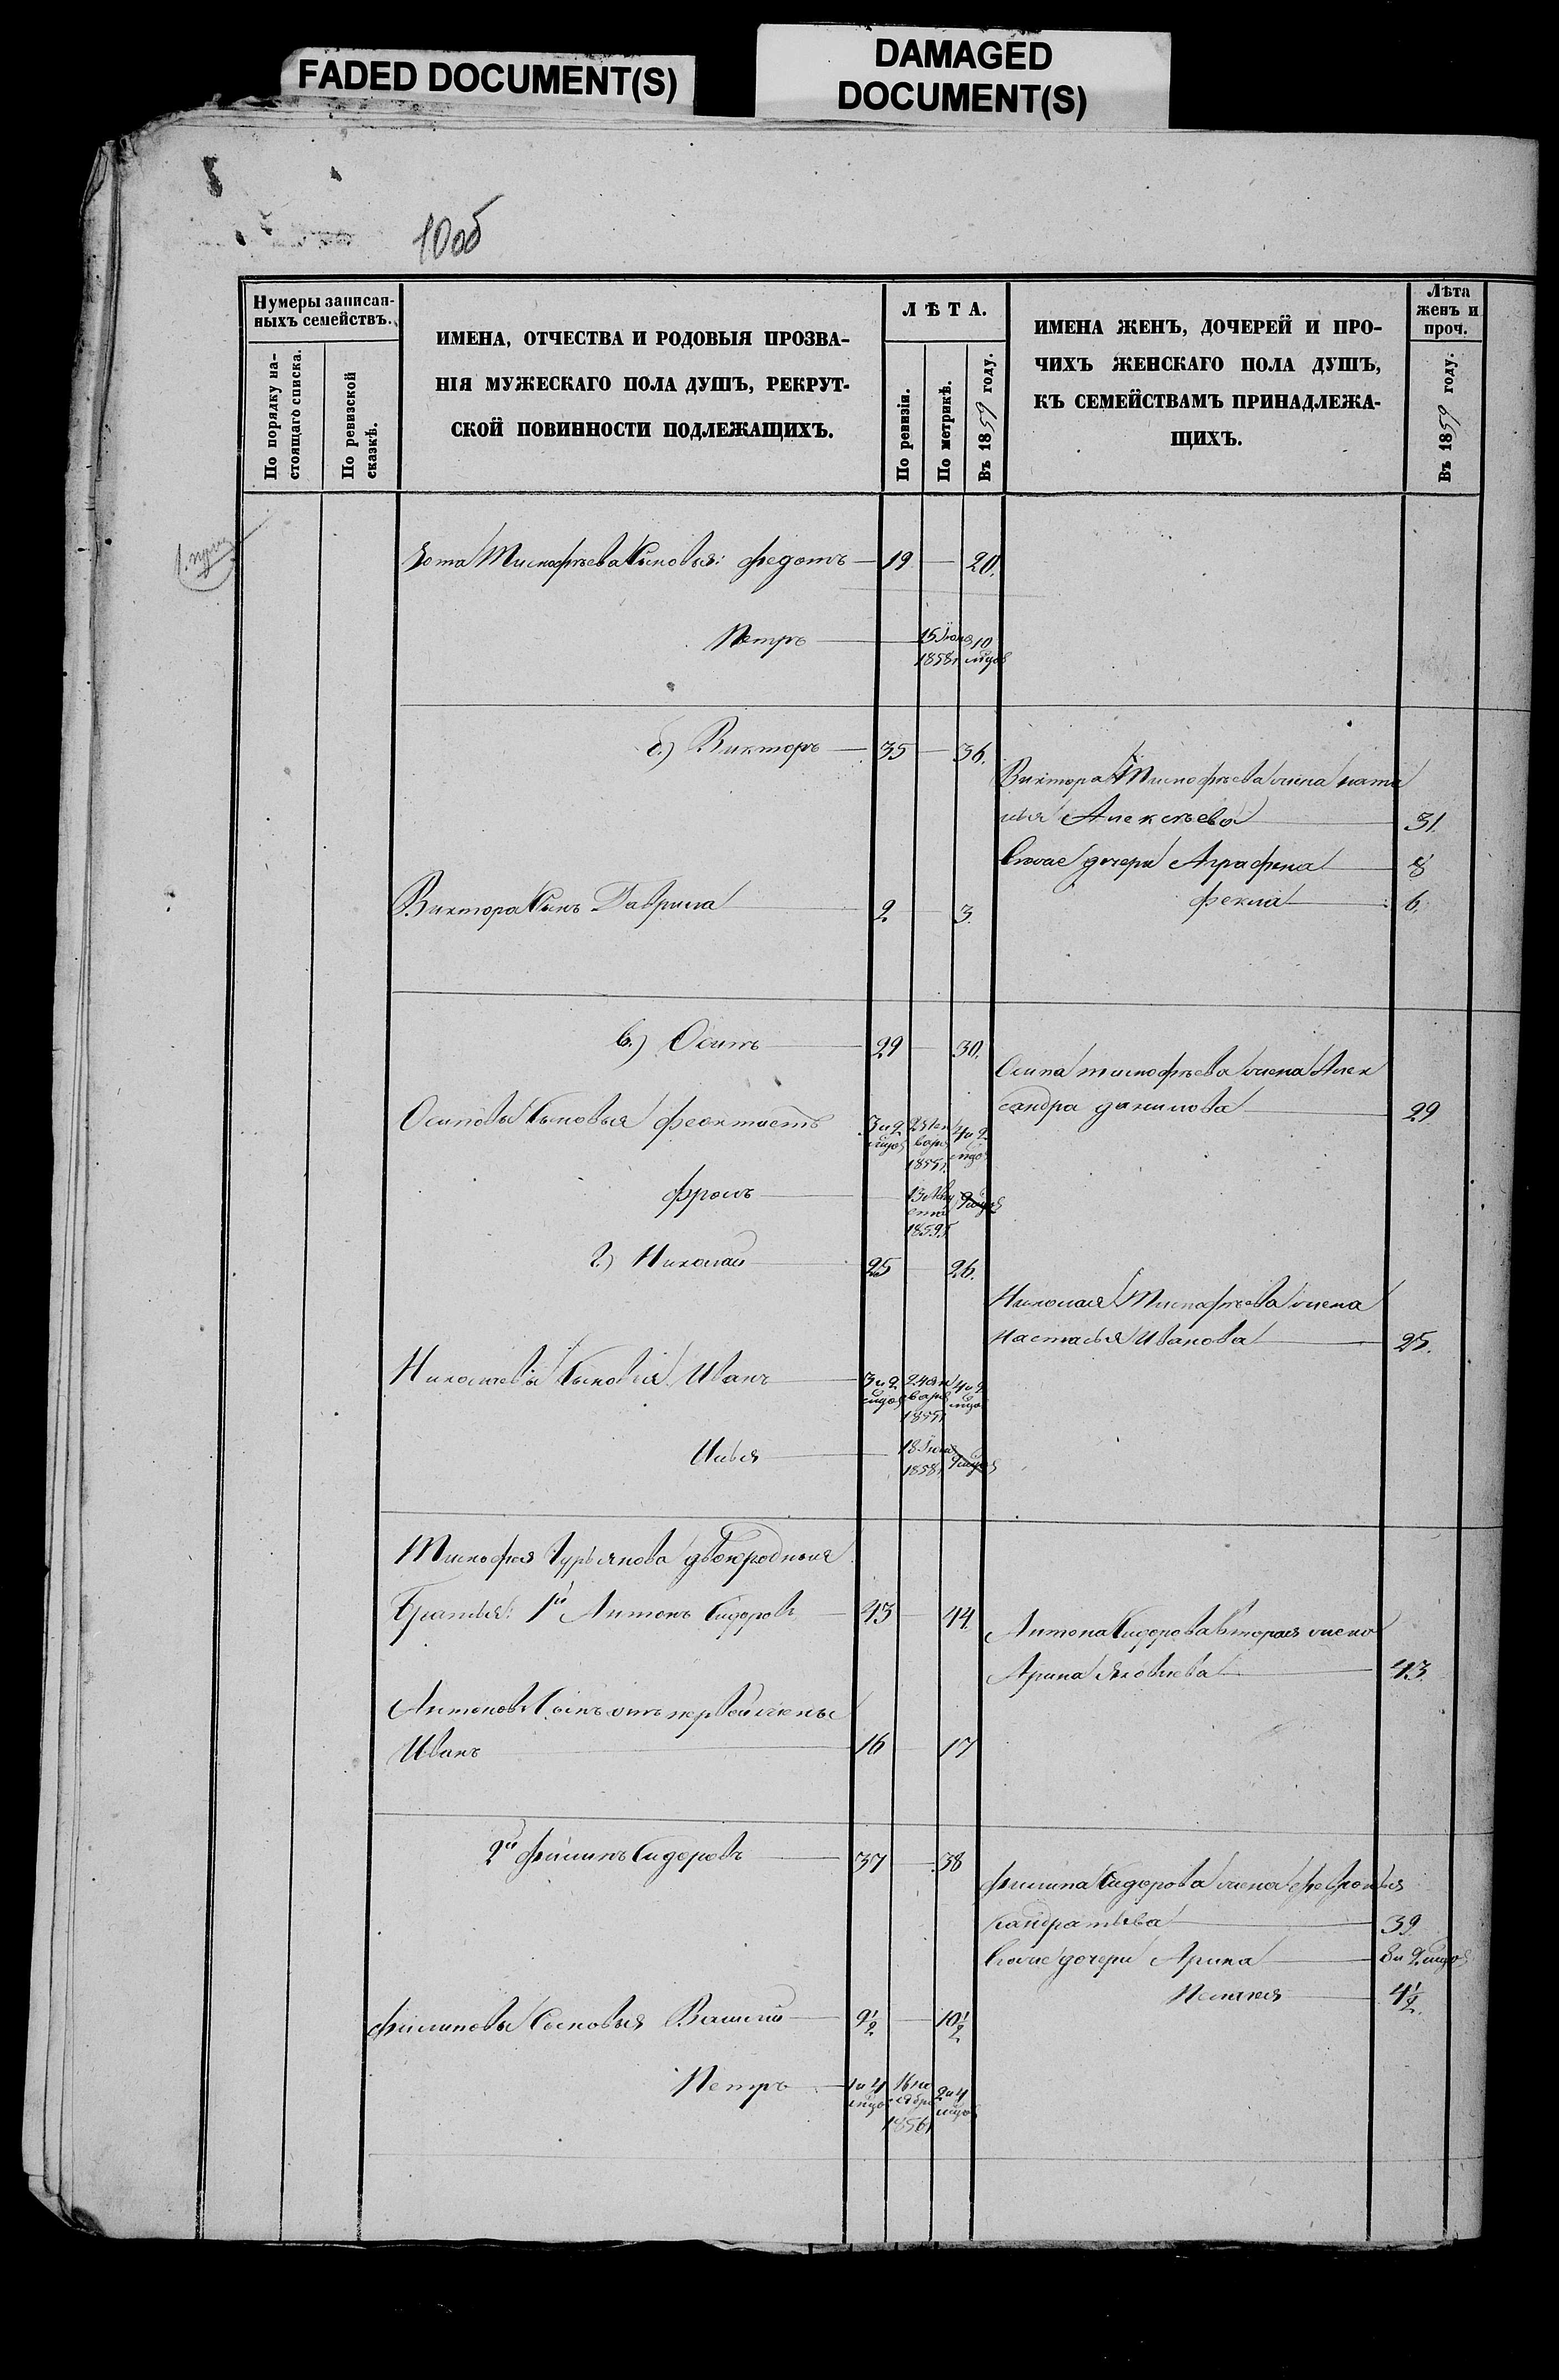 FADED DOCUMENT(S)
DAMAGED
DOCUMENT(S)
10об
Нумеры записан-
ныхъ семействъ.
По порядку на-
стоящаго списка.
По ревизской
сказкѣ.
ИМЕНА, ОТЧЕСТВА И РОДОВЫЯ ПРОЗВА-
НІЯ МУЖЕСКАГО ПОЛА ДУШЪ, РЕКРУТ-
СКОЙ ПОВИННОСТИ ПОДЛЕЖАЩИХЪ.
ЛѢТА.
По ревизіи.
По метрикѣ.
Въ 1859 году.
ИМЕНА ЖЕНЪ, ДОЧЕРЕЙ И ПРО-
ЧИХЪ ЖЕНСКАГО ПОЛА ДУШЪ,
КЪ СЕМЕЙСТВАМЪ ПРИНАДЛЕЖА-
ЩИХЪ.
Лѣта
женъ и
проч.
Въ 1859 году.
Зота Тимофѣева Сыновья: Федотъ 19 20.
Петръ 15 Іюня 10
1858г. мцов
б.) Викторъ 35 36.
Виктора Тимофѣева жена Ната
лья Алексѣева 31.
Ево дочери Аграфена 8
Фекла 6.
Виктора Сынъ Гаврила 2 3.
в.) Осипъ 29 30.
Осипа Тимофѣева жена Алек
сандра Данилова 29
Осиповы Сыновья Феоктистъ 3 и 2 мцов 23 Ян варя 1855г. 4 и 2 мцов
Фролъ 13 Авгу ста
г.) Николай 25 26.
Николая Тимофѣева жена
Настасья Иванова 25.
Николаевы Сыновья Иванъ 3 и 2 мцов 24 Ян варя 1855г. 4 и 2 мцов
Илья 18 1858г.
Тимофея Гурьянова двоюродныя
Братья: 1й Антонъ Сидоровъ 43 44.
Антона Сидорова вторая жена
Арина Яковлева 43.
Антоновъ Сынъ отъ первой жены
Иванъ 16 17
2й Филипъ Сидоровъ 37 38
Филипа Сидорова жена Февронья
Кандратьева 39
Ево дочери Арина 8 и 2 мцов
Пелагея 4½.
Филиповы Сыновья Василій 9½ 10½
Петръ 1 и 4 мцов 16 но ября 1856г 2 и 4 мцов